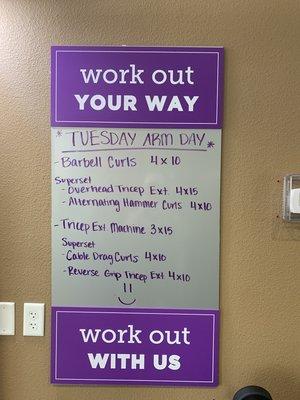 work out
YOUR WAY
* TUESDAY ARM DAY *
- Barbell Curls 4x10
Superset
- Overhead Tricep Ext. 4x15
- Alternating Hammer Curls 4x10
- Tricep Ext. Machine 3x15
Superset
- Cable Drag Curls 4x10
- Reverse Grip Tricep Ext. 4x10
work out
WITH US